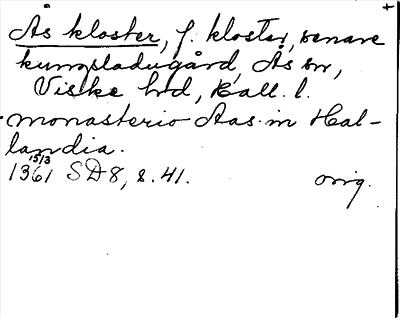 +
Ås kloster, f. kloster, senare
kungsladugård, Ås sn,
Viske hd, Hall. l.
monasterio Aas in Hal-
landia.
15/3
1361 SD 8, s. 41. orig.